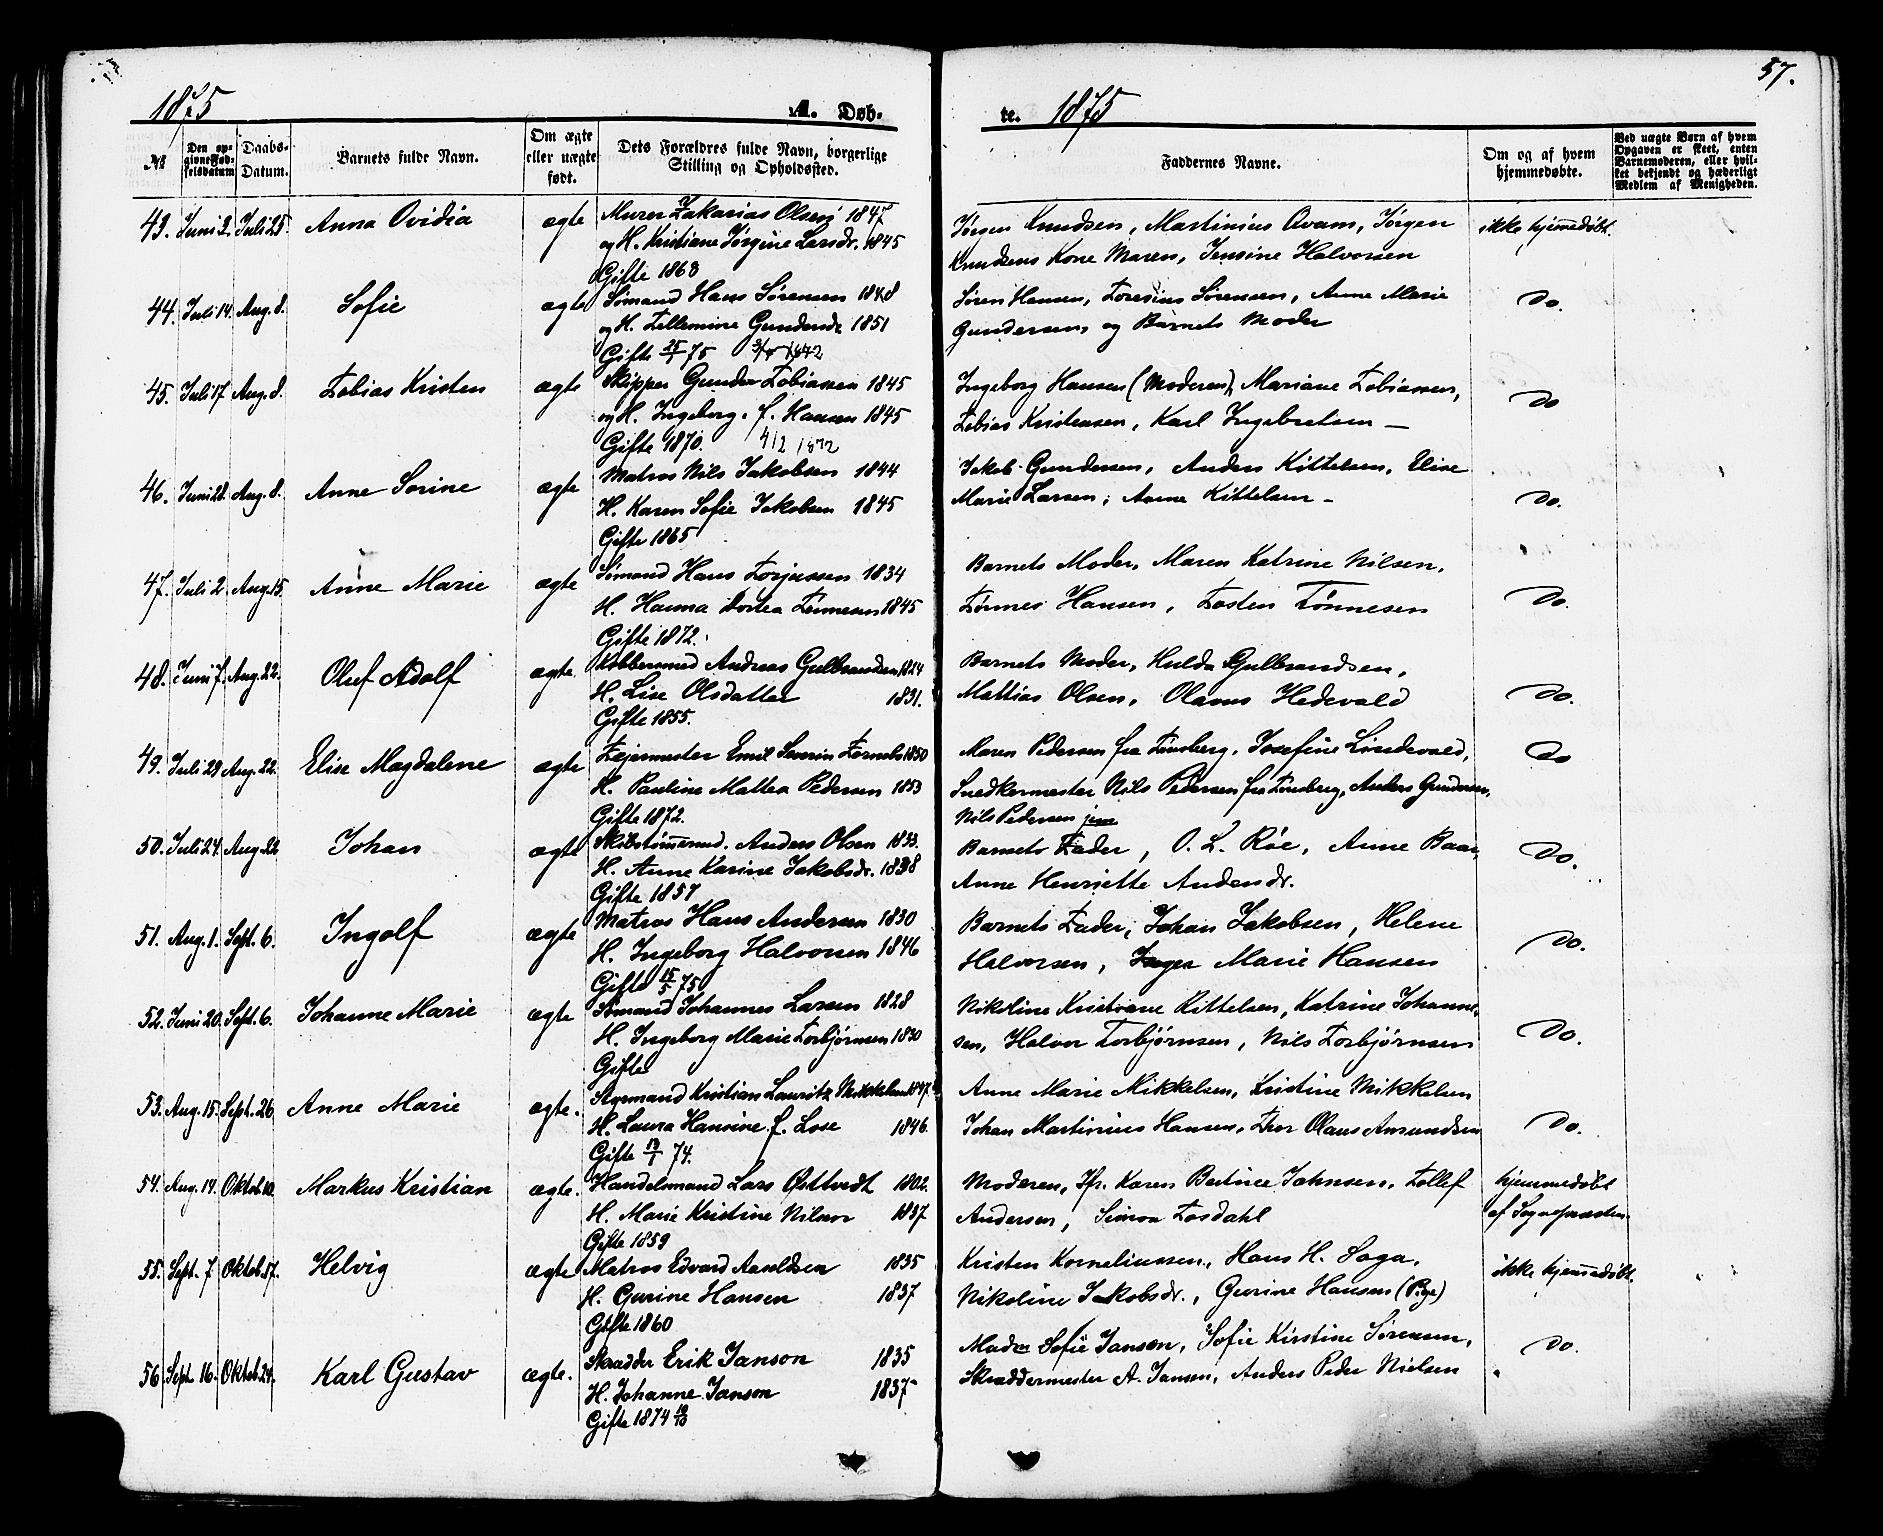 57.
1875 A. Døb- te. 1875
№
Den opgivne Fødselsdatum
Daabs-Datum.
Barnets fulde Navn.
Om ægte eller uægte født.
Dets Forældres fulde Navn, borgerlige Stilling og Opholdssted.
Faddernes Navne.
Om og af hvem hjemmedøbte.
Ved uægte Børn af hvem Opgaven er skeet, enten Barnemoderen, eller hvilket bekjendt og hæderligt Medlem af Menigheden.
43. Juni 2. Juli 25. Anna Ovidia ægte Murer Zakarias Olsen 1847
og H. Kristiane Jørgine Larsdr. 1845
Gifte 1868
Jørgen Knudsen, Martinius Avam, Jørgen
Knudsens Kone Maren, Jensine Halvorsen
ikke hjemmedøbt.
44. Juli 14. Aug. 8. Sofie ægte Sømand Hans Sørensen 1848
og H. Tellemine Gundersdr. 1851
Gifte 25/1 75 1872
Søren Hansen, Toresius Sørensen, Anne Marie
Gundersen, og Barnets Moder
Do.
45. Juli 17 Aug. 8. Tobias Kristen ægte Skipper Gunder Tobiassen 1845
og H. Ingeborg f. Hansen 1845
Gifte 1870. 4/2 1872
Ingeborg Hansen (Moderen), Mariane Tobiassen,
Tobias Kristensen, Karl Ingebretsen —
Do
46. Juni 28. Aug. 8. Anne Sorine ægte Matros Nils Jakobsen 1844
H. Karen Sofie Jakobsen 1845
Gifte 1865
Jakob Gundersen, Anders Kittelsen, Elise
Marie Larsen, Anne Kittelsen —
Do.
47. Juli 2 Aug. 15. Anne Marie ægte Sømand Hans Torjussen 1834
H. Hanna Dortea Tønnesen 1845
Gifte 1872.
Barnets Moder, Maren Katrine Nilsen,
Tønnes Hansen, Tosten Tønnesen
Do.
48. Juni 7. Aug. 22. Oluf Adolf ægte. Kobbersmed Andreas Gulbrandsen 1824
H. Lise Olsdatter 1831.
Gifte 1855.
Barnets Moder, Hulda Gulbrandsen,
Mattias Olsen, Olavus Hedevald
Do.
49. Juli 29 Aug. 22. Elise Magdalene ægte Tøjermester Emil Severin 1850
H. Pauline Mattea Pedersen 1853
Gifte 1872.
Maren Pedersen fra Tønsberg, Josefine Lindevald,
Snedkermester Nils Pedersen fra Tønsberg, Anders Gundersen,
Nils Pedersen jun
Do
50. Juli 24. Aug. 22 Johan ægte Skibstømmermd. Anders Olsen 1833.
H. Anne Karine Jakobsdr. 1838
Gifte 1857
Barnets Fader, O. L. Röe, Anne Baar,
Anne Henriette Andersdr.
Do.
51. Aug. 1. Sept. 6. Ingolf ægte Matros Hans Andersen 1830
H. Ingeborg Halvorsen 1846
Gifte 15/5 75
Barnets Fader, Johan Jakobsen, Helene
Halvorsen, Inger Marie Hansen
Do.
52. Juni 20. Sept. 6. Johanne Marie ægte Sømand Johannes Larsen 1828
H. Ingeborg Marie Torbjørnsen 1830
Gifte
Nikoline Kristiane Kittelsen, Katrine Johanne-
sen, Halvor Torbjørnsen, Nils Torbjørnsen
Do.
53. Aug. 15. Sept. 26. Anne Marie ægte. Styrmand Kristian Lauritz Mikkelsen 1847.
H. Laura Hansine f. Lose 1846.
Gifte 13/1 74.
Anne Marie Mikkelsen, Kristine Mikkelsen
Johan Martinius Hansen, Thor Olaus Amundsen
Do.
54. Aug. 14. Oktob. 10. Markus Kristian ægte. Handelsmand Lars Østtvedt 1802.
H. Marie Kristine Nilsen 1837
Gifte 1859
Moderen, Jfr. Karen Bertine Johnsen, Tollef
Andersen, Simon Fosdahl
hjemmedøbt
af Sognepræsten
55. Sept. 7 Oktob. 17. Helvig ægte Matros Edvard Aaseldsen 1835
H. Gurine Hansen 1837
Gifte 1860
Kristen Korneliussen, Hans H. Soga,
Nikoline Jakobsdr., Gurine Hansen (Pige)
ikke hjemmedøbt.
56 Sept. 16. Oktob. 24. Karl Gustav ægte. Skrædder Erik Janson 1835
H. Johanne Janson 1837
Gifte 1874 18/10
Madm Sofie Janson, Sofie Kirstine Sørensen,
Skræddermester A. Jansen, Anders Peder Nielsen
Do.